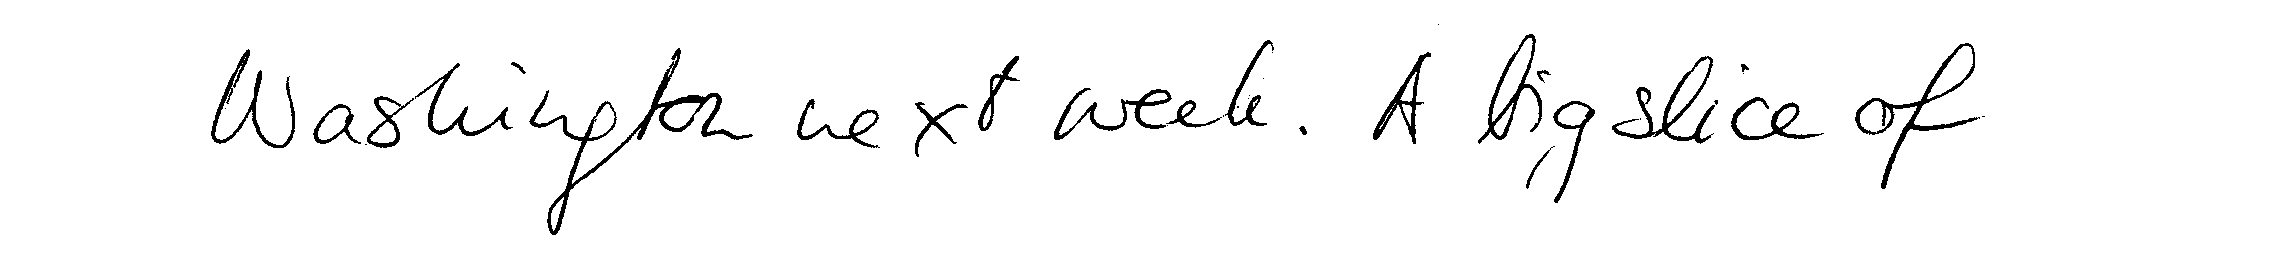 Washington next week. A big slice of